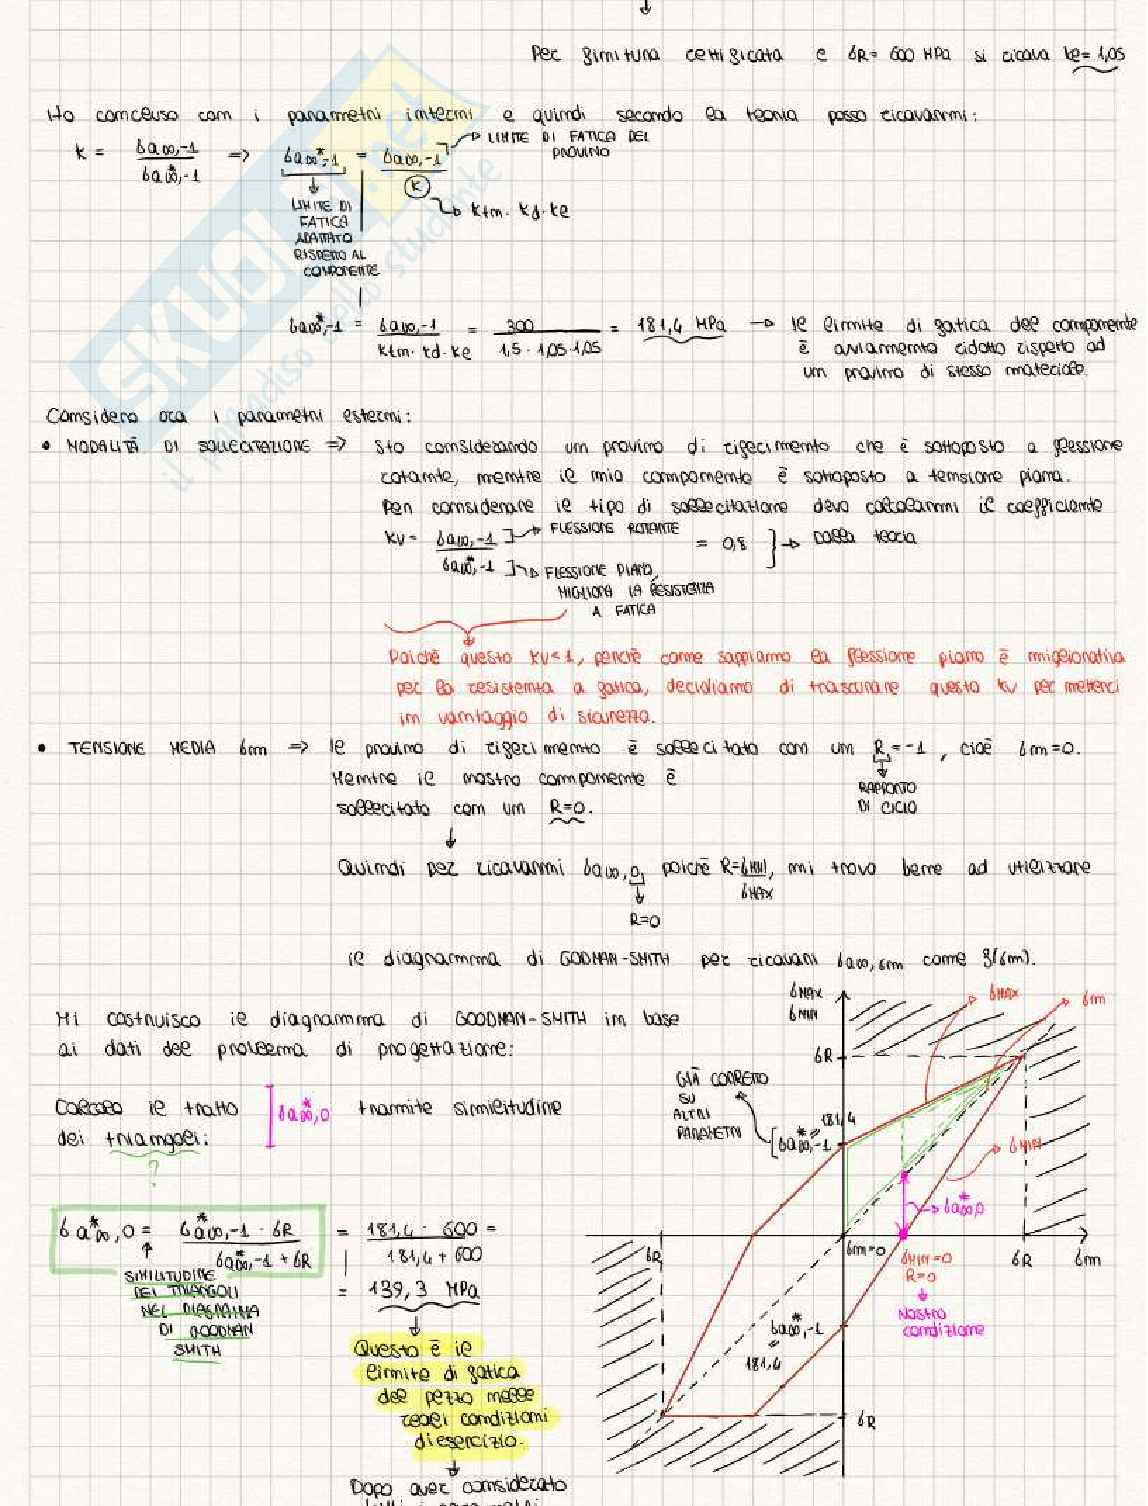 Per finitura certificata e σR= 600 MPa si ricava ke= 1,05
Ho concluso con i parametri interni e quindi secondo la teoria posso ricavarmi:
K = σa∞,-1 / σa*∞,-1 => σa∞*,-1 = σa∞,-1 / K
LIMITE DI FATICA DEL PROVINO
Ktm · Kd · Ke
LIMITE DI
FATICA
ADATTATO
RISPETTO AL
COMPONENTE
σa∞*,-1 = σa∞,-1 / Ktm · Kd · Ke = 300 / 1,5 · 1,05 · 1,05 = 181,4 MPa → le limite di fatica del componente
è ovviamente ridotto rispetto ad
un provino di stesso materiale.
Considero ora i parametri esterni:
• MODALITÀ DI SOLLECITAZIONE => Sto considerando un provino di riferimento che è sottoposto a flessione
rotante, mentre il mio componente è sottoposto a tensione piana.
Per considerare il tipo di sollecitazione devo calcolarmi il coefficiente
KV = σa∞,-1 / σa∞*,-1 = 0,8 → Dalla teoria
FLESSIONE ROTANTE
FLESSIONE PIANA,
MIGLIORA LA RESISTENZA
A FATICA
Poichè questo KV<1, perchè come sappiamo la flessione piana è migliorativa
per la resistenza a fatica, decidiamo di trascurare questo kv per metterci
in vantaggio di sicurezza.
• TENSIONE MEDIA σm => le provino di riferimento è sollecitato con un R = -1, cioè σm=0.
Mentre il nostro componente è
sollecitato con un R=0.
RAPPORTO
DI CICLO
Quindi per ricavarmi σa∞,0, poichè R= σMIN / σMAX, mi trovo bene ad utilizzare
R=0
il diagramma di GOODMAN-SMITH per ricavarmi σa∞,σm come f(σm).
Mi costruisco il diagramma di GOODMAN-SMITH in base
ai dati del problema di progettazione:
Calcolo il tratto σa*∞,0 tramite similitudine
dei triangoli:
?
σa*∞,0 = σa*∞,-1 · σR / σa*∞,-1 + σR = 181,4 · 600 / 181,4 + 600 =
= 139,3 MPa
SIMILITUDINE
DEI TRIANGOLI
NEL DIAGRAMMA
DI GOODMAN
SMITH
Questo è il
limite di fatica
del pezzo nelle
reali condizioni
di esercizio.
Dopo aver considerato
tutti i parametri
σMAX
σMIN
σMAX
σm
σR
GIÀ CORRETTO
SU
ALTRI
PARAMETRI
181,4
σa*∞,-1
σMIN
σa*∞,0
σR
σm=0
σMIN=0
R=0
Nostra
condizione
σR
σm
σa*∞,-1
181,4
σR
SKUOLA.net
il paradiso dello studente